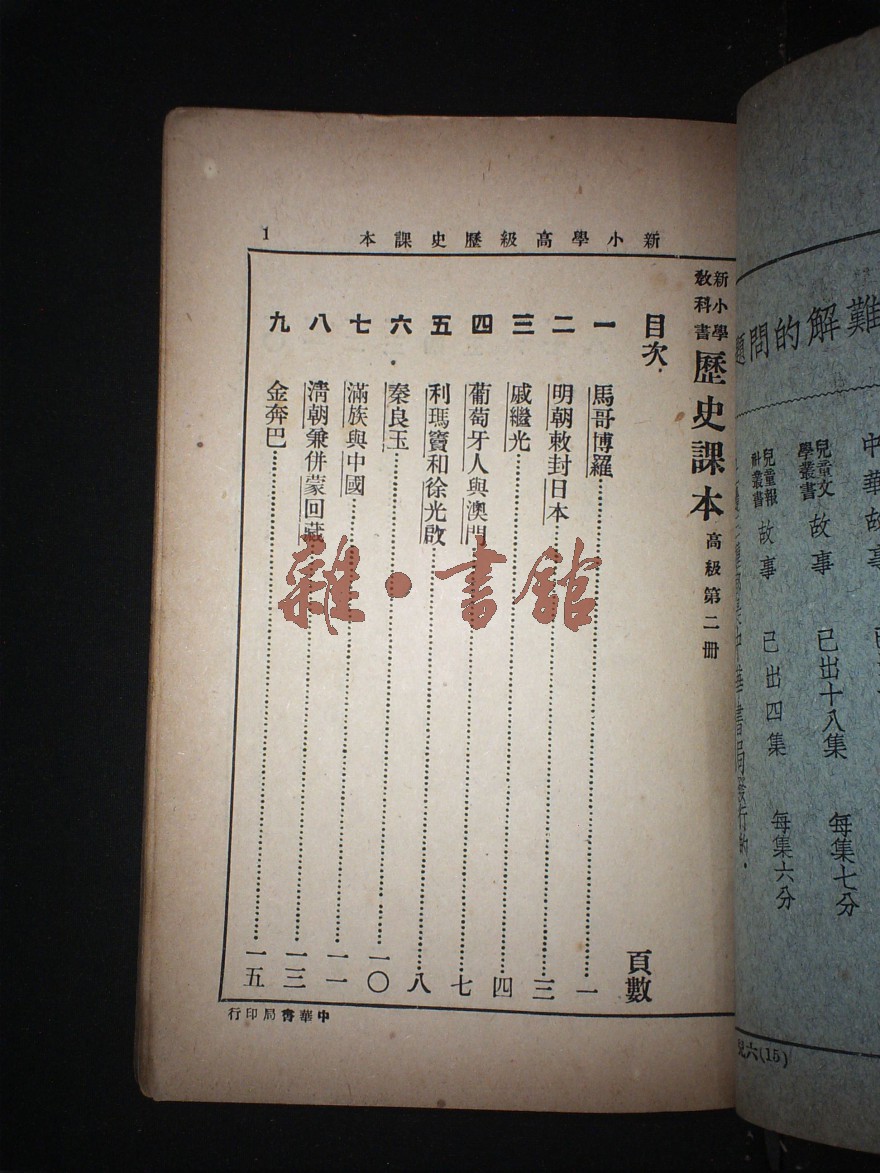 新小學高級歷史課本
1
新小學
教科書
歷史課本
高級第二冊
目次
頁數
一 馬哥博羅 一
二 明朝敕封日本 三
三 戚繼光 四
四 葡萄牙人與澳門 七
五 利瑪竇和徐光啟 八
六 秦良玉 一〇
七 滿族與中國 一一
八 清朝兼併蒙回藏 一三
九 金奔巴 一五
中華書局印行
雜·書館
難解的問題
中華故事
兒童文
學叢書
故事 已出十八集 每集七分
兒童報
社叢書
故事 已出四集 每集六分
中華書局發行的
六兒(15)